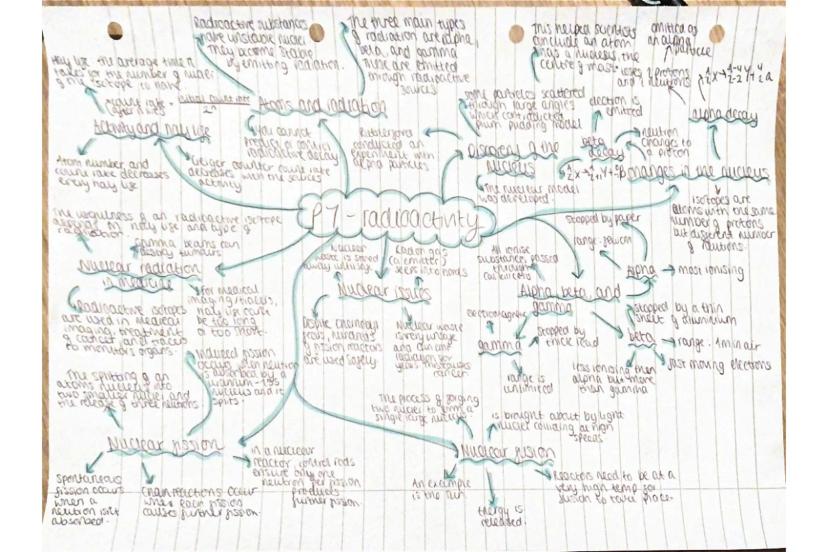 Radioactive substances
have unstable nuclei
They become stable
by emitting radiation.
The three main types
of radiation are alpha,
beta, and gamma
These are emitted
through radioactive
sources
This helped scientists
conclude an atom
has a nucleus, the
centre of mass.
emitted as
an alpha
particle
loses 2 protons
and 2 neutrons
Half life the average time it
takes for the number of nuclei
of the isotope to halve
Atoms and radiation
Activity and half life
You cannot
predict or control
radioactive decay
Atom number and
count rate decreases
every half life
Geiger counter count rate
decreases with the sources
activity
Rutherford
conducted an
experiment with
alpha particles
some particles scattered
through large angles
which contradicted
plum pudding model
Discovery of the
nucleus
The nuclear model
was developed.
electron is
emitted
beta
decay
neutron
changes to
a proton
alpha decay
changes in the nucleus
isotopes are
atoms with the same
number of protons
but different number
of neutrons.
P7 - radioactivity
The usefulness of an radioactive isotope
depends on half life and type of
radiation.
Gamma beams can
destroy tumours
Nuclear radiation
in medicine
Radioactive isotopes
are used in medical
imaging, treatment
of cancer, and tracers
to monitors organs.
for medical
imaging/tracers,
half life can't be
too long
or too short.
Nuclear
waste is stored
away
Radon gas
(α emitter)
seeps into
Nuclear issues
Despite Chernobyl
fears, hundreds
of fission reactors
are used safely
Nuclear waste
is very unsafe
and can emit
radiation for
years
cancer
All ionise
substances, passed
through
Alpha beta, and
gamma
stopped by paper
range: 5cm
alpha
most ionising
stopped by a thin
sheet of aluminium
beta
range: 1m in air
fast moving electrons
less ionising than
alpha but more
than gamma
electromagnetic
gamma
stopped by
thick lead
range is
unlimited
Induced fission
occurs when neutron
is absorbed by a
uranium-235
nucleus and it
splits.
The splitting of an
atoms nucleus into
two smaller nuclei and
the release of three neutrons
Nuclear fission
spontaneous
fission occurs
when a
neutron isn't
absorbed.
chain reactions occur
when each fission
causes further fission.
in a nuclear
reactor, control rods
ensure only one
neutron per fission
produces
further fission.
The process of forcing
two nuclei to form a
single large nucleus
is brought about by light
nuclei colliding at high
speeds
Nuclear fusion
An example
is the sun
Energy is
released.
Reactors need to be at a
very high temp for
fusion to take place.